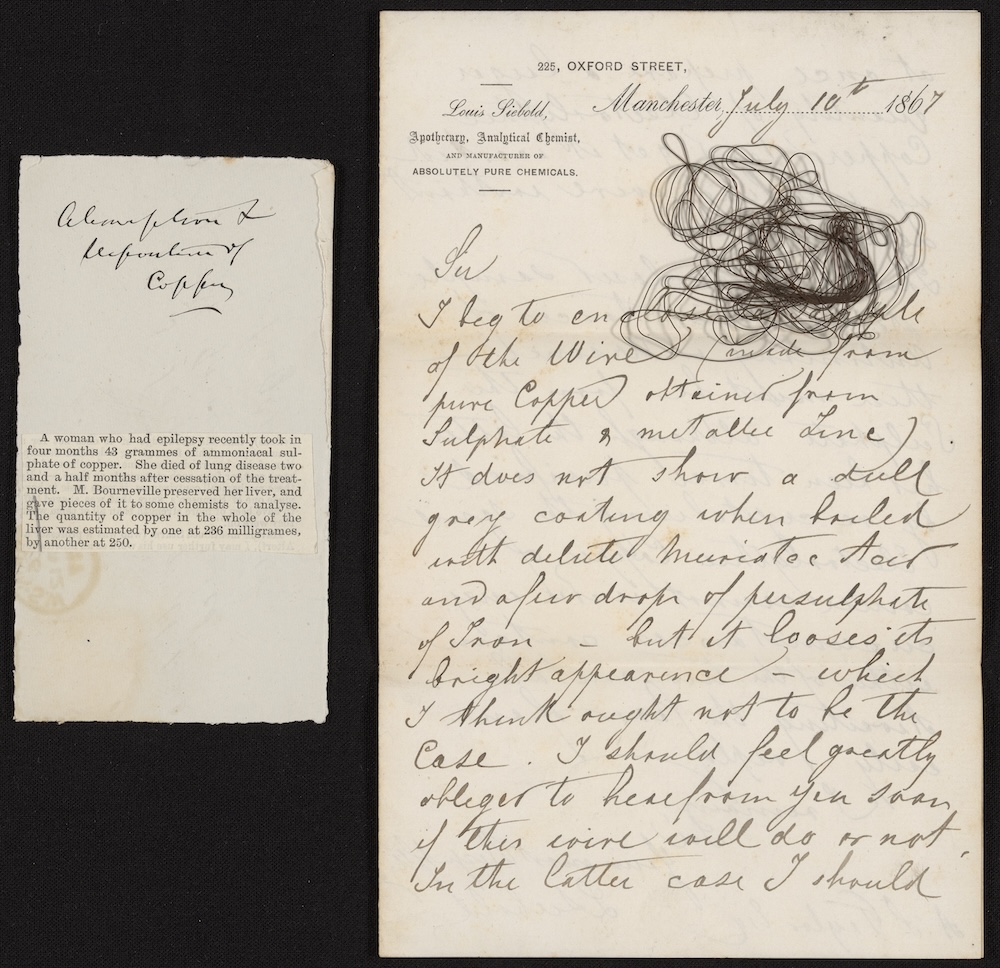 Absorption &
deposition of
Copper
A woman who had epilepsy recently took in
four months 43 grammes of ammoniacal sul-
phate of copper. She died of lung disease two
and a half months after cessation of the treat-
ment. M. Bourneville preserved her liver, and
gave pieces of it to some chemists to analyse.
The quantity of copper in the whole of the
liver was estimated by one at 236 milligrames,
by another at 250.
225, OXFORD STREET,
Manchester, July 10th 1867
Louis Siebold,
Apothecary, Analytical Chemist,
AND MANUFACTURER OF
ABSOLUTELY PURE CHEMICALS.
Sir
I beg to enclose a sample
of the Wire (made from
pure Copper obtained from
Sulphate & metallic Zinc)
It does not show a dull
grey coating when boiled
with dilute Muriatic Acid
and a few drops of persulphate
of Iron – but it looses its
bright appearence – which
I think ought not to be the
Case. I should feel greatly
obliged to hear from you soon,
if this wire will do or not.
In the latter case I should